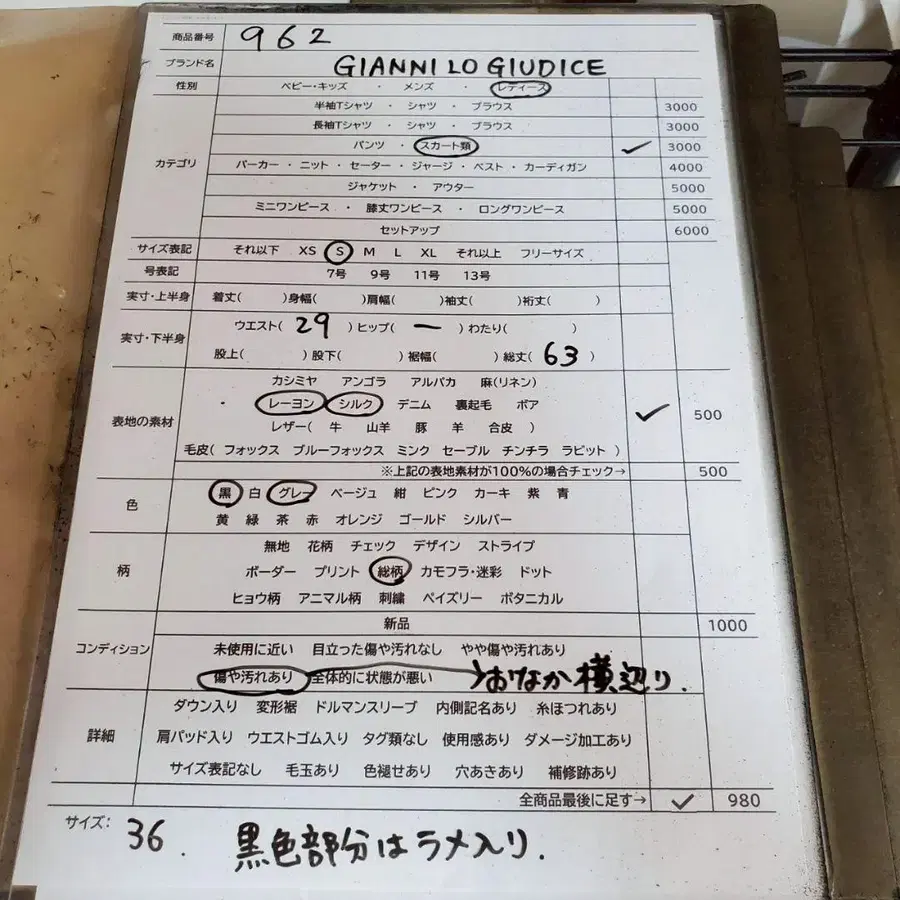 商品番号 962
ブランド名 GIANNI LO GIUDICE
性別 ベビー・キッズ ・ メンズ ・ レディース
半袖Tシャツ ・ シャツ ・ ブラウス 3000
長袖Tシャツ ・ シャツ ・ ブラウス 3000
カテゴリ パンツ ・ スカート類 ✓ 3000
パーカー ・ ニット ・ セーター ・ ジャージ ・ ベスト ・ カーディガン 4000
ジャケット ・ アウター 5000
ミニワンピース ・ 膝丈ワンピース ・ ロングワンピース 5000
セットアップ 6000
サイズ表記 それ以下 XS S M L XL それ以上 フリーサイズ
号表記 7号 9号 11号 13号
実寸・上半身 着丈( )身幅( )肩幅( )袖丈( )裄丈( )
実寸・下半身 ウエスト( 29 )ヒップ( ー )わたり( )
股上( )股下( )裾幅( )総丈( 63 )
カシミヤ アンゴラ アルパカ 麻(リネン)
表地の素材 ・ レーヨン シルク デニム 裏起毛 ボア ✓ 500
レザー( 牛 山羊 豚 羊 合皮 )
毛皮( フォックス ブルーフォックス ミンク セーブル チンチラ ラビット )
※上記の表地素材が100%の場合チェック→ 500
色 黒 白 グレー ベージュ 紺 ピンク カーキ 紫 青
黄 緑 茶 赤 オレンジ ゴールド シルバー
無地 花柄 チェック デザイン ストライプ
柄 ボーダー プリント 総柄 カモフラ・迷彩 ドット
ヒョウ柄 アニマル柄 刺繍 ペイズリー ボタニカル
新品 1000
コンディション 未使用に近い 目立った傷や汚れなし やや傷や汚れあり
傷や汚れあり 全体的に状態が悪い →おなか横辺り.
ダウン入り 変形裾 ドルマンスリーブ 内側記名あり 糸ほつれあり
詳細 肩パッド入り ウエストゴム入り タグ類なし 使用感あり ダメージ加工あり
サイズ表記なし 毛玉あり 色褪せあり 穴あきあり 補修跡あり
全商品最後に足す→ ✓ 980
サイズ: 36 . 黒色部分はラメ入り.